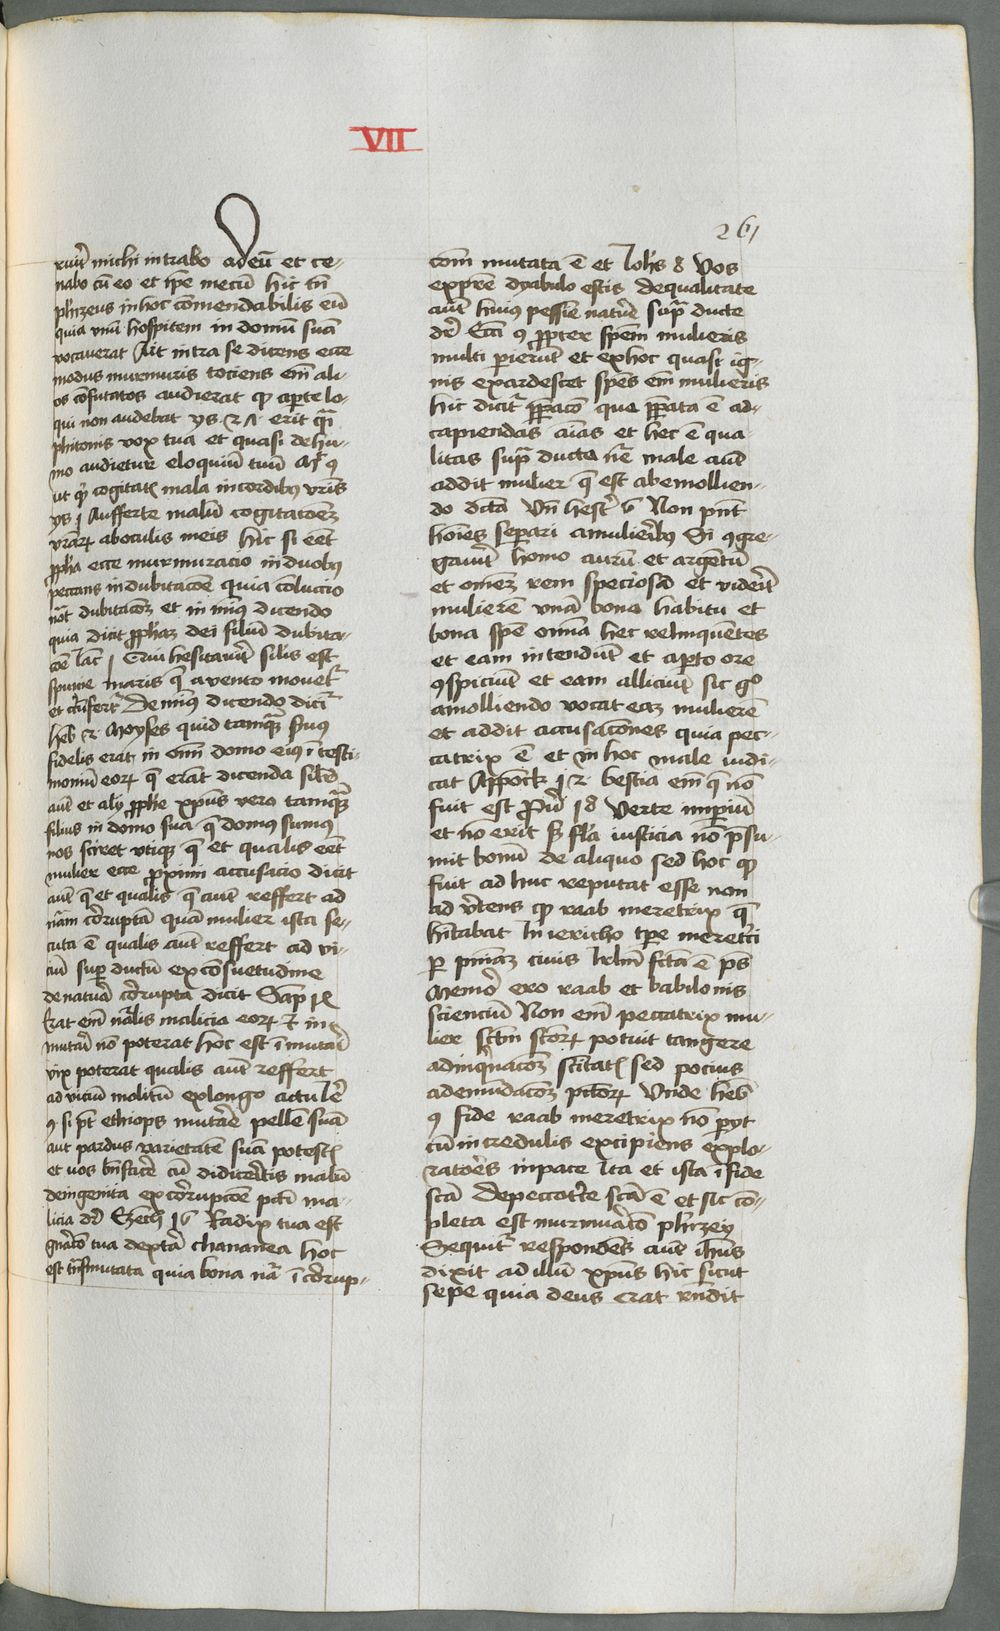 VII
261
ruerit michi intrabo ad eū et ce-
nabo cū eo et ip̄e mecū hic tn̄
ph̄izeus in hoc cōmendabilis eū
quia vnū hospitem in domū suā
vocauerat Ait intra se dicens ecce
modus murmuris tociens em̄ ali-
os cōfutatos audierat qꝫ aperte lo-
qui non audebat ys 29 erit q̄i
phitonis vox tua et quasi de hu-
mo audietur eloquiū tuū
ut qͥd cogitatis mala in cordibꝯ vr̄is
ys 1 Aufferte malū cogitacōeꝫ
vr̄arꝫ ab oculis meis hic si eēt
ꝓph̄a ecce murmuracio in duobꝯ
peccans in dubitacōe quia cōiunccio
not dubitacōeꝫ et in minꝯ dicendo
quia dicit ꝓph̄aꝫ dei filiū dubita-
cōe Iac 1 Qui hesitauit silis est
spume maris q̄ a vento mouet᷑
et c̄fert᷑ De minꝯ dicendo dicit᷑
heb 3 Moyses quid tamqꝫ fm̄ꝯ
fidelis erat in om̄i domo eiꝯ ī testi-
moniū eorꝫ q̄ erāt dicenda sil̄r
aut et alij ꝓph̄e xp̄us vero tamqꝫ
filius in domo sua q̄ domꝯ sumꝯ
nos sciret vtiqꝫ q̄ et qualis eēt
mulier ecce ꝓximi accusacio dicit
aut q̄ et qualis q̄ aut reffert ad
nām cōruptā quā mulier ista se-
cuta ē qualis aut reffert ad vi-
ciū sup ductū ex cōsuetudine
de natura cōrupta dicit Sap 12
Erat em̄ nālis malicia eorꝫ et in-
mutari nō poterat hoc est ī mutari
vix poterat qualis aut reffert
ad viciū molitū ex longo actu Ie
9 si pt̄ ethiops mutare pellē suā
aut pardus varietatē suā potestis
et vos bn̄facere cū didiceritis malū
de ingenita ex cōrupcōe pcti ma-
licia dr̄ Ezech 16 Radix tua est
gn̄acō tua de terra chananea hoc
est trāsmutata quia bona nā ī cōrup-
com̄ mutata ē et Ioh̄s 8 Vos
ex patre dyabulo estis de qualitate
aut huius pessime nature supra ducte
dr̄ Ecci 9 ꝓpter speciem mulieris
multi perierūt et ex hoc quasi ig-
nis exardescet spēs em̄ mulieris
hic dicit᷑ ꝓpacō que ꝓpata ē ad
capiendas aīas et hec ē qua-
litas supra ducta nre male aut
addit mulier q̄ est ab emollien-
do dicta Vn̄ hestre 6 Non pn̄t
hoīes separi a mulieribꝯ Si ꝯgre-
gauerit homo aurū et argentū
et omnē rem speciosā et viderit
mulierē vnā bono habitu et
bona spē omnia hec relinquentes
et eam intendūt et aperto ore
ꝯspiciūt et eam alliciūt sic gͦ
amolliendo vocat eaꝫ mulierē
et addit accusacōnes quia pec-
catrix ē et in hoc male iudi-
cat Appock 17 bestia em̄ q̄ nō
fuit est Prou 18 Verte impiū
et nō erit sꝫ fla iusticia nō p̄su-
mit bonū de aliquo sed hoc qꝫ
fuit ad huc reputat esse non
aduertens qꝫ raab meretrix q̄
hitabat in iericho tp̄e meretrici
ꝑ pn̄iaꝫ ciuis Irlm̄ fc̄ta ē ps
Memor ero raab et babilonis
scienciū Non em̄ peccatrix mu-
lier sc̄tm̄ sc̄torꝫ potuit tangere
ad inqͥnacōeꝫ sc̄itatis sed pocius
ad emūdacōeꝫ pctorꝫ Vnde heb
9 fide raab meretrix nō perijt
cū incredulis excipiens explo-
ratores in pace Ita et ista ī fide
sc̄ā de peccatrice sc̄ā ē et sic cō-
pleta est murmuracō ph̄izey
Sequit᷑ respondens aut ih̄us
dixit ad illū xp̄us hic sicut
sepe quia deus erat rn̄dit